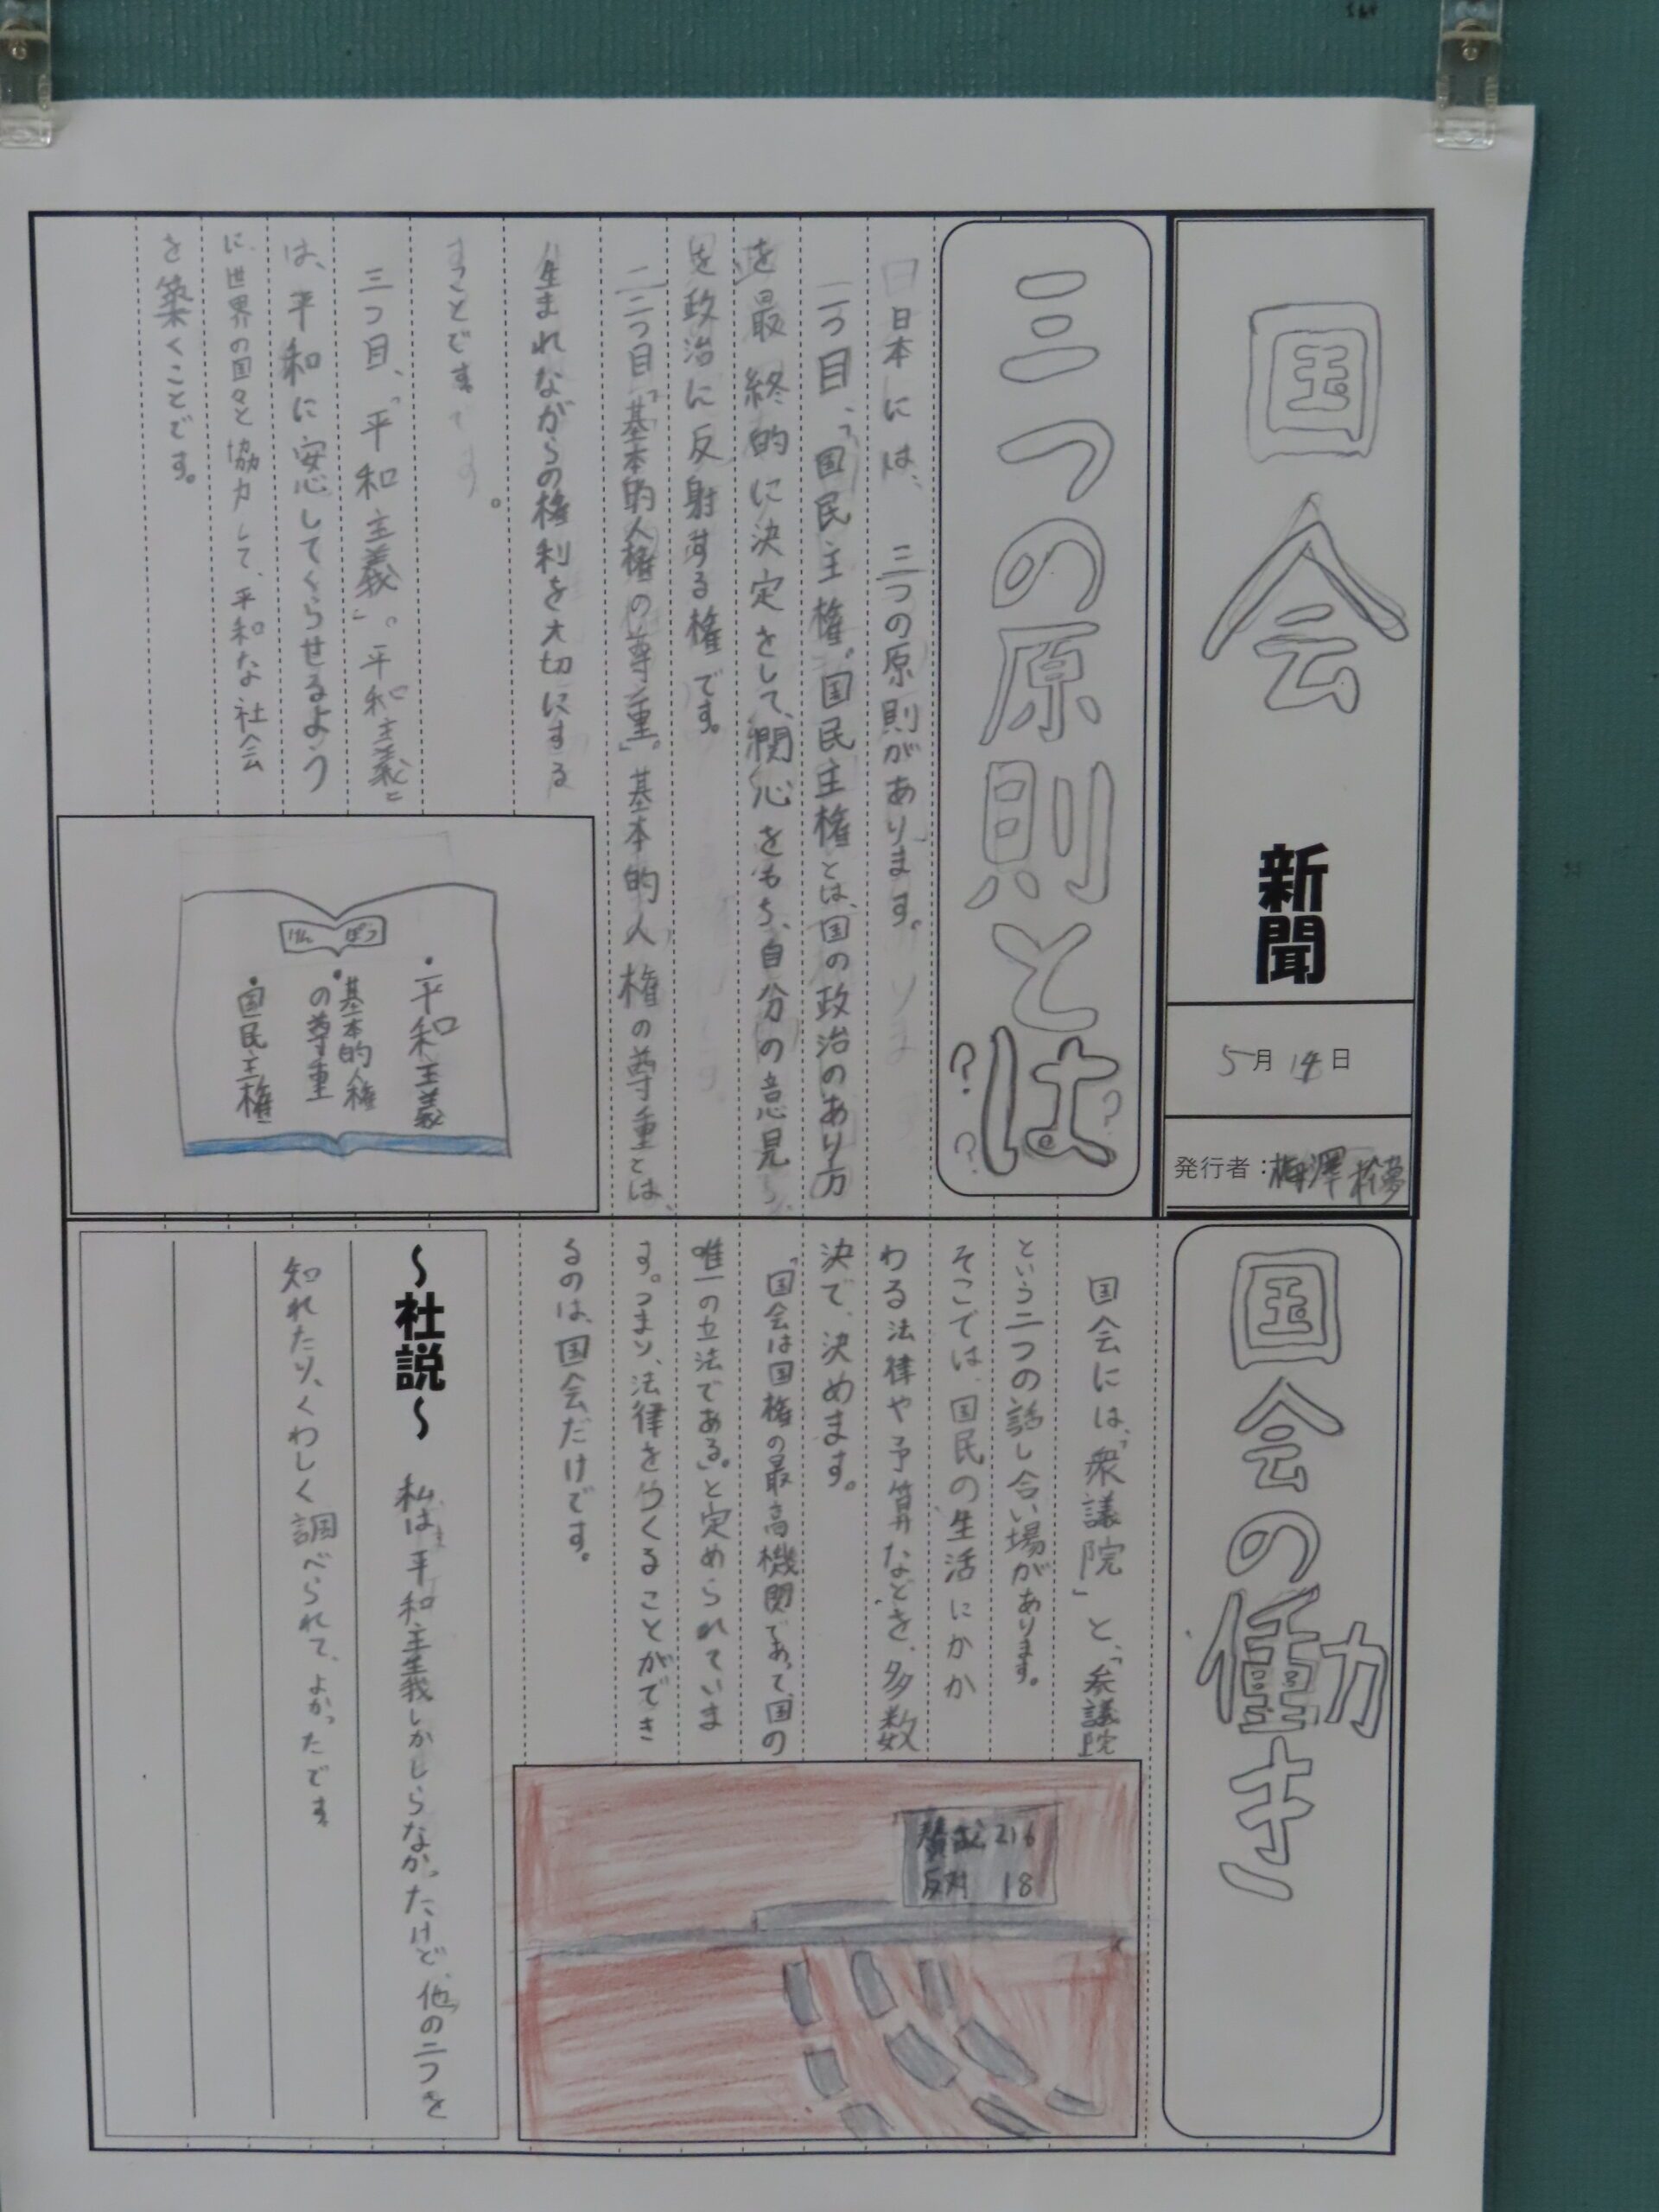 国会新聞
5月14日
発行者：梅澤
三つの原則とは
???
日本には、三つの原則があります。
一つ目、「国民主権。国民主権とは、国の政治のあり方
を最終的に決定をして、関心をもち、自分の意見
を政治に反射する権です。
二つ目「基本的人権の尊重」。基本的人権の尊重とは、
生まれながらの権利を大切にする
ことです。
三つ目、「平和主義」。平和主義と
は、平和に安心してくらせるよう
に、世界の国々と協力して、平和な社会
を築くことです。
けんぽう
・平和主義
・基本的人権
の尊重
・国民主権
国会の働き
国会には、「衆議院」と、「参議院
という二つの話し合い場があります。
そこでは、国民の生活にかか
わる法律や予算などを、多数
決で、決めます。
「国会は国権の最高機関であって、国の
唯一の立法である」。と定められていま
す。つまり、法律をつくることができ
るのは、国会だけです。
216
反対 18
～社説～
私は平和主義しかしらなかったけど、他の二つを
知れたり、くわしく調べられて、よかったです